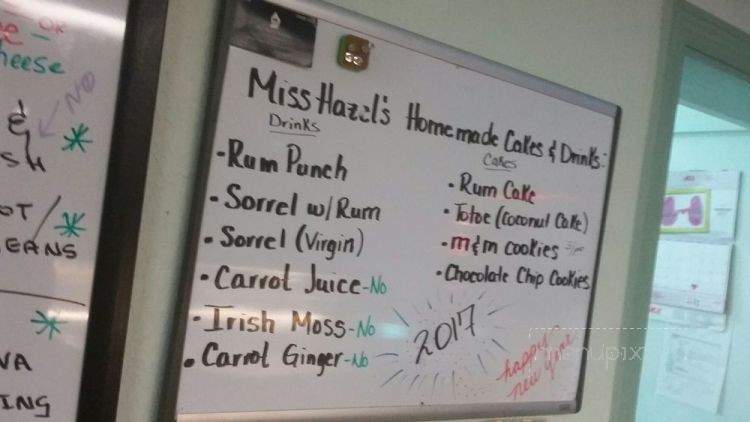 OR
heese
NO
&
SH
OT/
EANS
VA
ING
Miss Hazel's Homemade Cakes & Drinks:
Drinks
-Rum Punch
• Sorrel w/Rum
• Sorrel (Virgin)
• Carrot Juice-No
• Irish Moss-No
• Carrot Ginger-No
Cakes
• Rum Cake
• Totoe (Coconut Cake)
• m&m cookies
• Chocolate Chip Cookies
2017
happy
new year
menupix